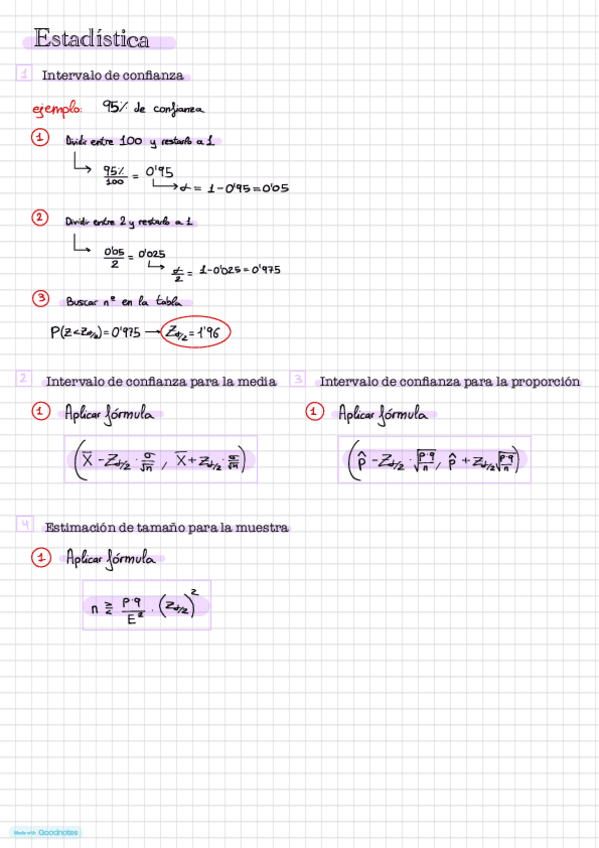 Estadística
1 Intervalo de confianza
ejemplo: 95% de confianza
1 Dividir entre 100 y restarlo a 1
95%/100 = 0'95
α = 1-0'95=0'05
2 Dividir entre 2 y restarlo a 1
0'05/2 = 0'025
α/2 = 1-0'025=0'975
3 Buscar nº en la tabla
P(Z<Zα/2)=0'975 → Zα/2=1'96
2 Intervalo de confianza para la media
1 Aplicar fórmula
(X̄ - Zα/2 · σ/√n , X̄ + Zα/2 · σ/√n)
3 Intervalo de confianza para la proporción
1 Aplicar fórmula
(p̂ - Zα/2 · √(p·q/n), p̂ + Zα/2 √(p·q/n))
4 Estimación de tamaño para la muestra
1 Aplicar fórmula
n ≥ p·q/E² · (Zα/2)²
Made with Goodnotes